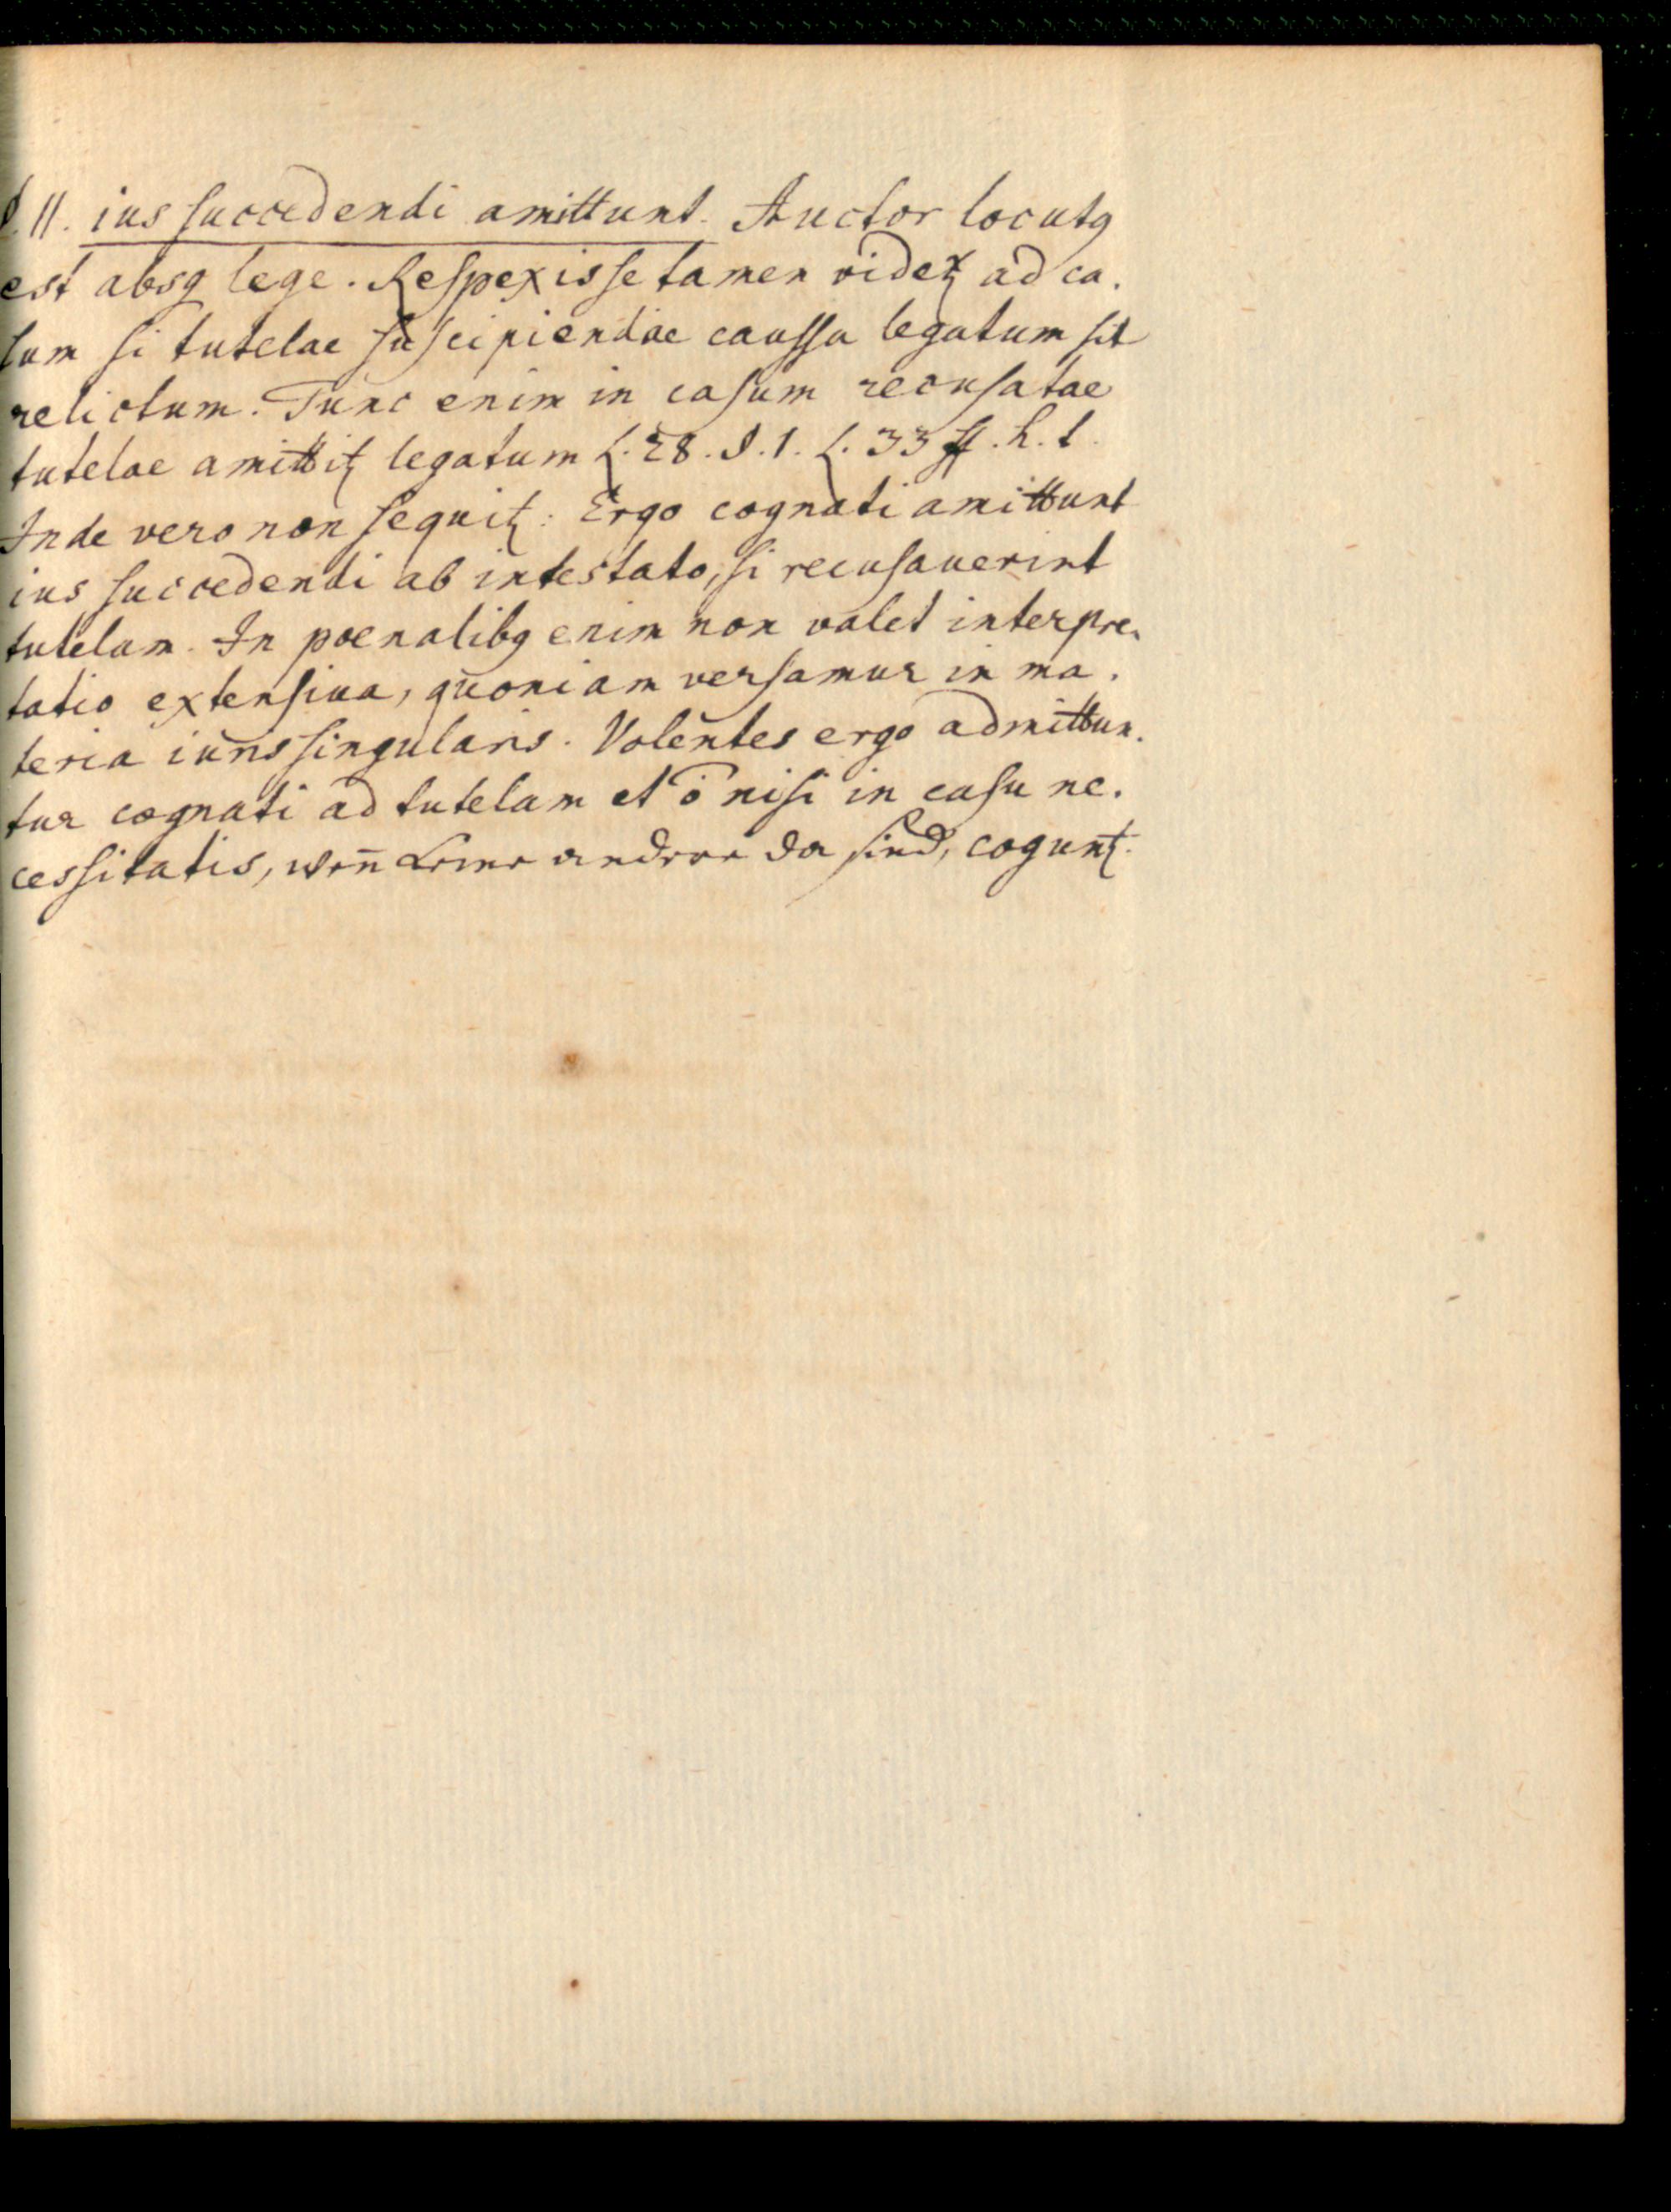 §. 11. ius succedendi amittunt. Auctor locutꝯ
est absq lege. Respexisse tamen videtꝛ ad ca-
sum si tutelae suscipiendae caussa legatum sit
relictum. Tunc enim in casum recusatae
tutelae amittitꝛ legatum L. 28. §. 1. L. 33 ff. h. t.
Inde vero non sequitꝛ: Ergo cognati amittunt
ius succedendi ab intestato, si recusauerint
tutelam. In poenalibꝯ enim non valet interpre-
tatio extensiua, quoniam versamur in ma-
teria iuris singularis. Volentes ergo admittun-
tur cognati ad tutelam et õ nisi in casu ne-
cessitatis, wen̄ keine andere da sind, coguntꝛ.